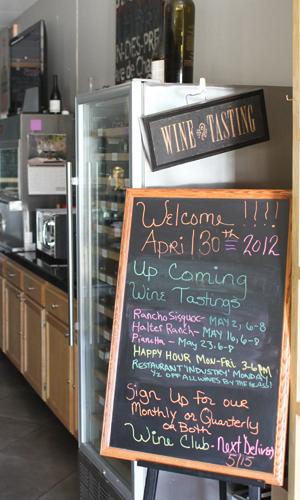 DES-PRE
WINE TASTING
Welcome !!!!
April 30th 2012
Up Coming
Wine Tastings
Rancho Sisquoc- MAY 2, 6-8
Halter Ranch- MAY 16, 6-8
Pianetta - May 23, 6-8
HAPPY HOUR MON-FRI 3-6PM
RESTAURANT 'INDUSTRY' MONDAY
1/2 OFF ALL WINES BY THE GLASS!
Sign Up For our
Monthly or Quarterly
or Both
Wine Club- Next Delivery
5/15